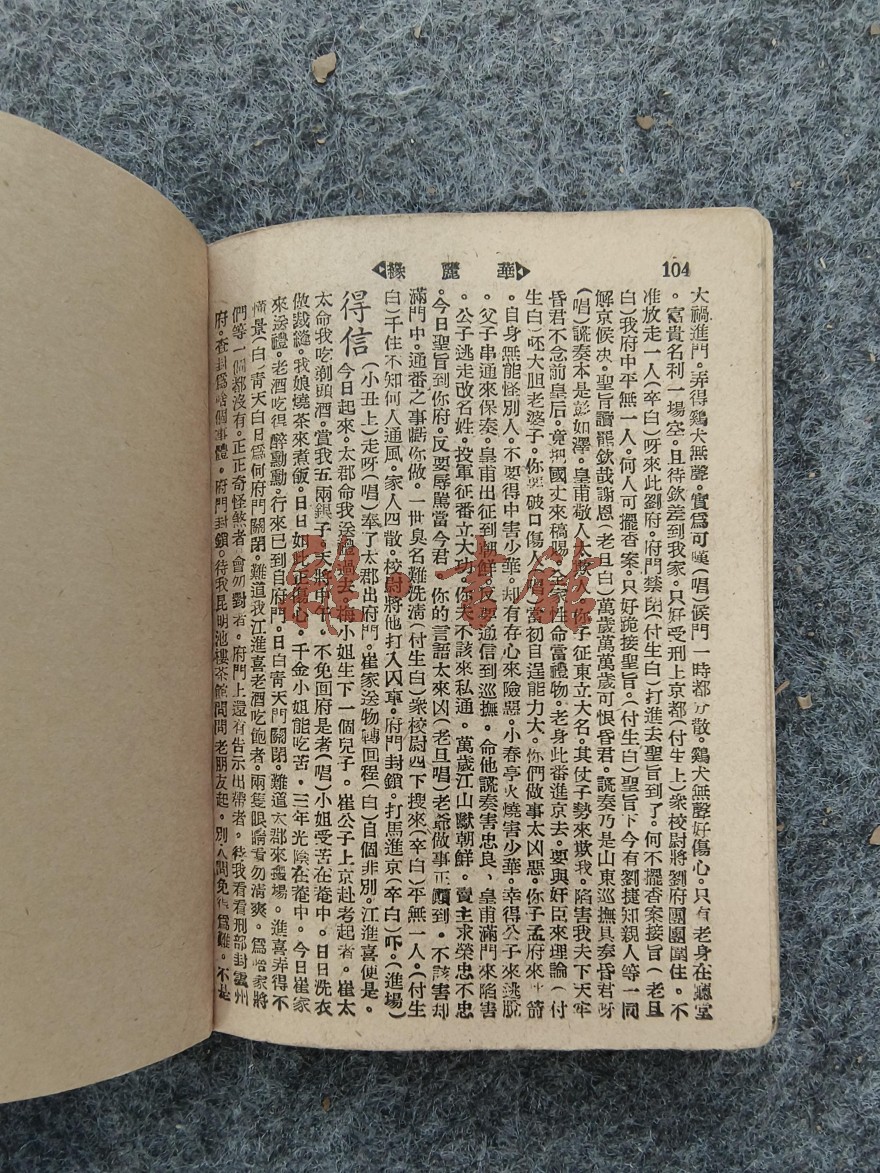 104
華麗緣
大禍進門。弄得鷄犬無聲。實爲可嘆(唱)候門一時都分散。鷄犬無聲好傷心。只有老身在廳堂
。富貴名利一場空。且待欽差到我家。只好受刑上京都(付生上)衆校尉將劉府團團圍住。不
准放走一人(卒白)呀來此劉府。府門禁閉(付生白)打進去聖旨到了。何不擺香案接旨(老旦
白)我府中平無一人。何人可擺香案。只好跪接聖旨。(付生白)聖旨下今有劉捷知親人等一同
解京候决。聖旨讀罷欽哉謝恩(老旦白)萬歲萬萬歲可恨昏君。謊奏乃是山東巡撫具奏昏君呀
(唱)謊奏本是彭如澤。皇甫敬人太欺人。你子征東立大名。其仗子勢來欺我。陷害我夫下天牢
昏君不念前皇后。竟把國丈來稿賜。全家性命當禮物。老身此番進京去。要與奸臣來理論(付
生白)呸大胆老婆子。你要破口傷人(唱)當初自逞能力大。你們做事太凶惡。你子孟府來寸箭
。自身無能怪別人。不要得中害少華。却有存心來險惡。小春亭火燒害少華。幸得公子來逃脫
。父子串通來保奏。皇甫出征到朝鮮。反單通信到巡撫。命他謊奏害忠良。皇甫滿門來陷害
。公子逃走改名姓。投軍征番立大功。你夫不該來私通。萬歲江山獻朝鮮。賣主求榮忠不忠
。今日聖旨到你府。反要辱駡當今君。你的言語太來凶(老旦唱)老爺做事正顚到。不該害却
滿門中。通番之事踮你做。一世臭名難洗淸(付生白)衆校尉四下搜來(卒白)平無一人。(付生
白)千住不知何人通風。家人四散。校尉將他打入囚車。府門封鎖。打馬進京(卒白)吓。(進場)
得信
(小丑上)走呀(唱)奉了太郡出府門。崔家送物轉回程(白)自個非別。江進喜便是。
今日起來。太郡命我送禮過去。梅小姐生下一個兒子。崔公子上京赴考起者。崔太
太命我吃剃頭酒。賞我五兩銀子。天將中午。不免回府是者(唱)小姐受苦在菴中。日日洗衣
做裁縫。我娘燒茶來煮飯。日日如此正傷心。千金小姐能吃苦。三年光陰在菴中。今日崔家
來送禮。老酒吃得醉勳勳。行來已到自府門。日白靑天門關閉。難道太郡來龜場。進喜弄得不
懂景(白)靑天白日爲何府門關閉。難道我江進喜老酒吃飽者。兩隻眼睛看勿淸爽。爲啥家將
們等一個都沒有。正正奇怪煞者。會勿對者。府門上還有告示出帶者。待我看看刑部封雲州
府。查封爲啥個事體。府門封鎖。待我昆明池樓茶館問問老朋友起。別人問免得爲難。不是